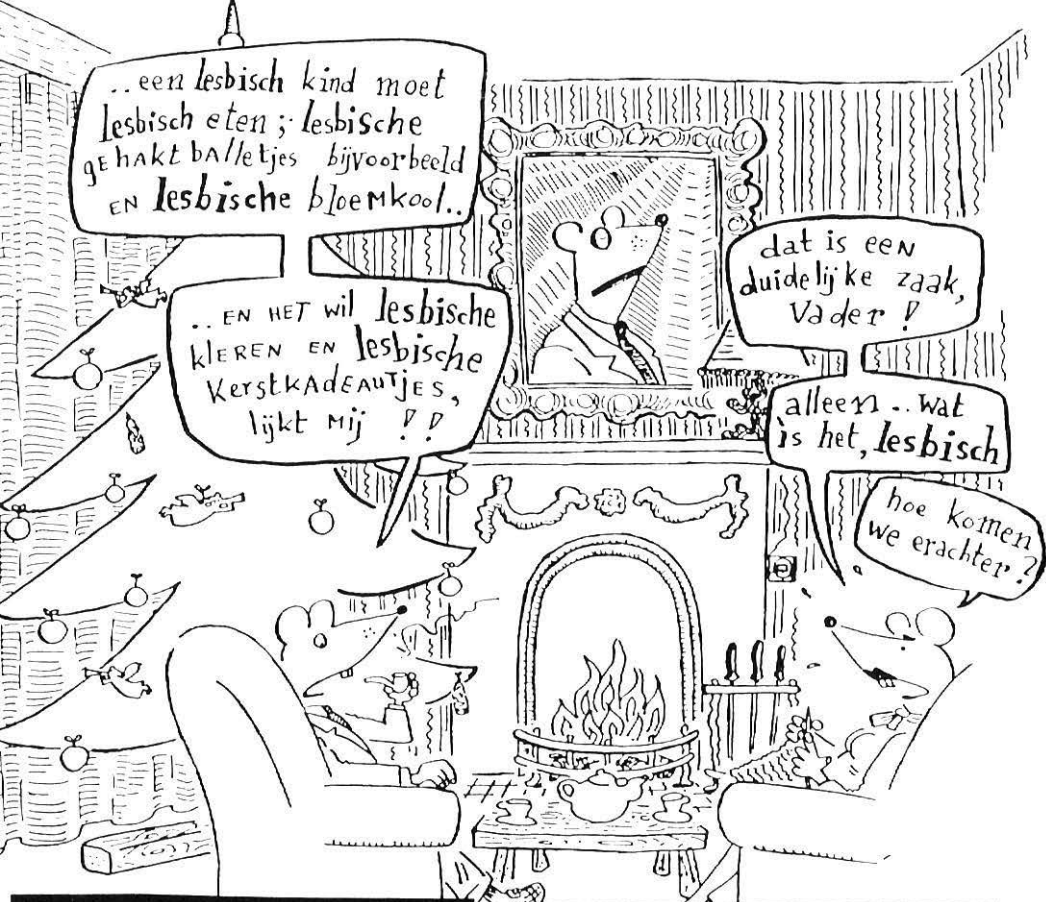 ..een lesbisch kind moet
lesbisch eten; lesbische
gehaktballetjes bijvoorbeeld
en lesbische bloemkool..
..en het wil lesbische
kleren en lesbische
kerstkadeautjes,
lijkt mij !!
dat is een
duidelijke zaak,
Vader!
alleen.. wat
is het, lesbisch
hoe komen
we erachter?